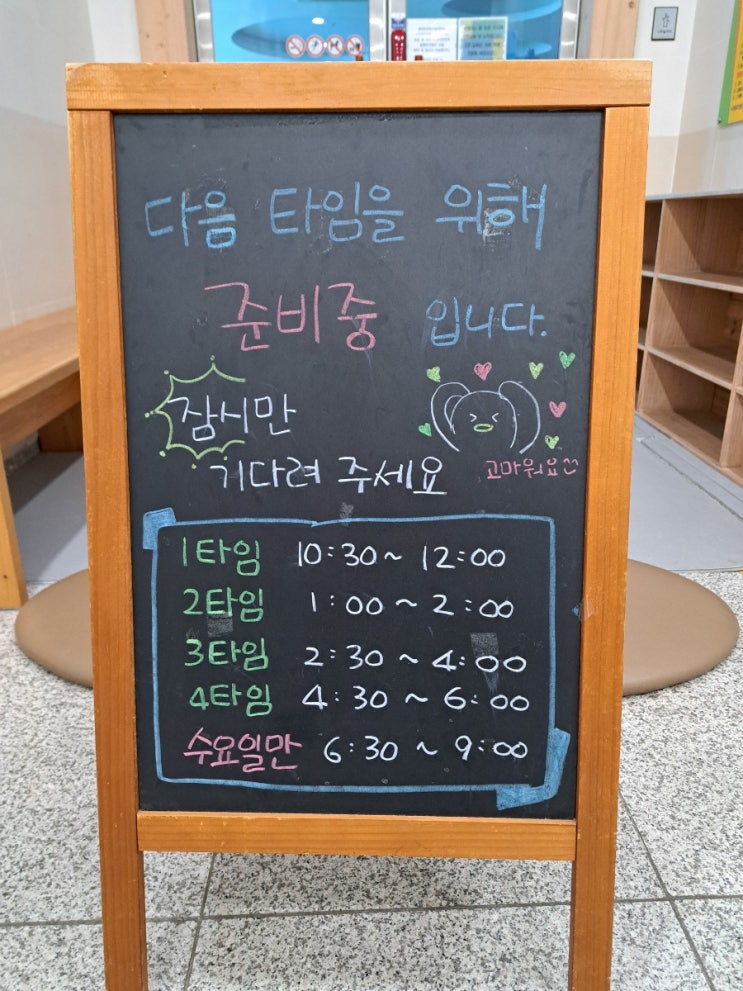 다음 타임을 위해
준비중 입니다.
잠시만
기다려 주세요
고마워요
1타임 10:30~ 12:00
2타임 1:00 ~ 2:00
3타임 2:30 ~ 4:00
4타임 4:30 ~ 6:00
수요일만 6:30 ~ 9:00